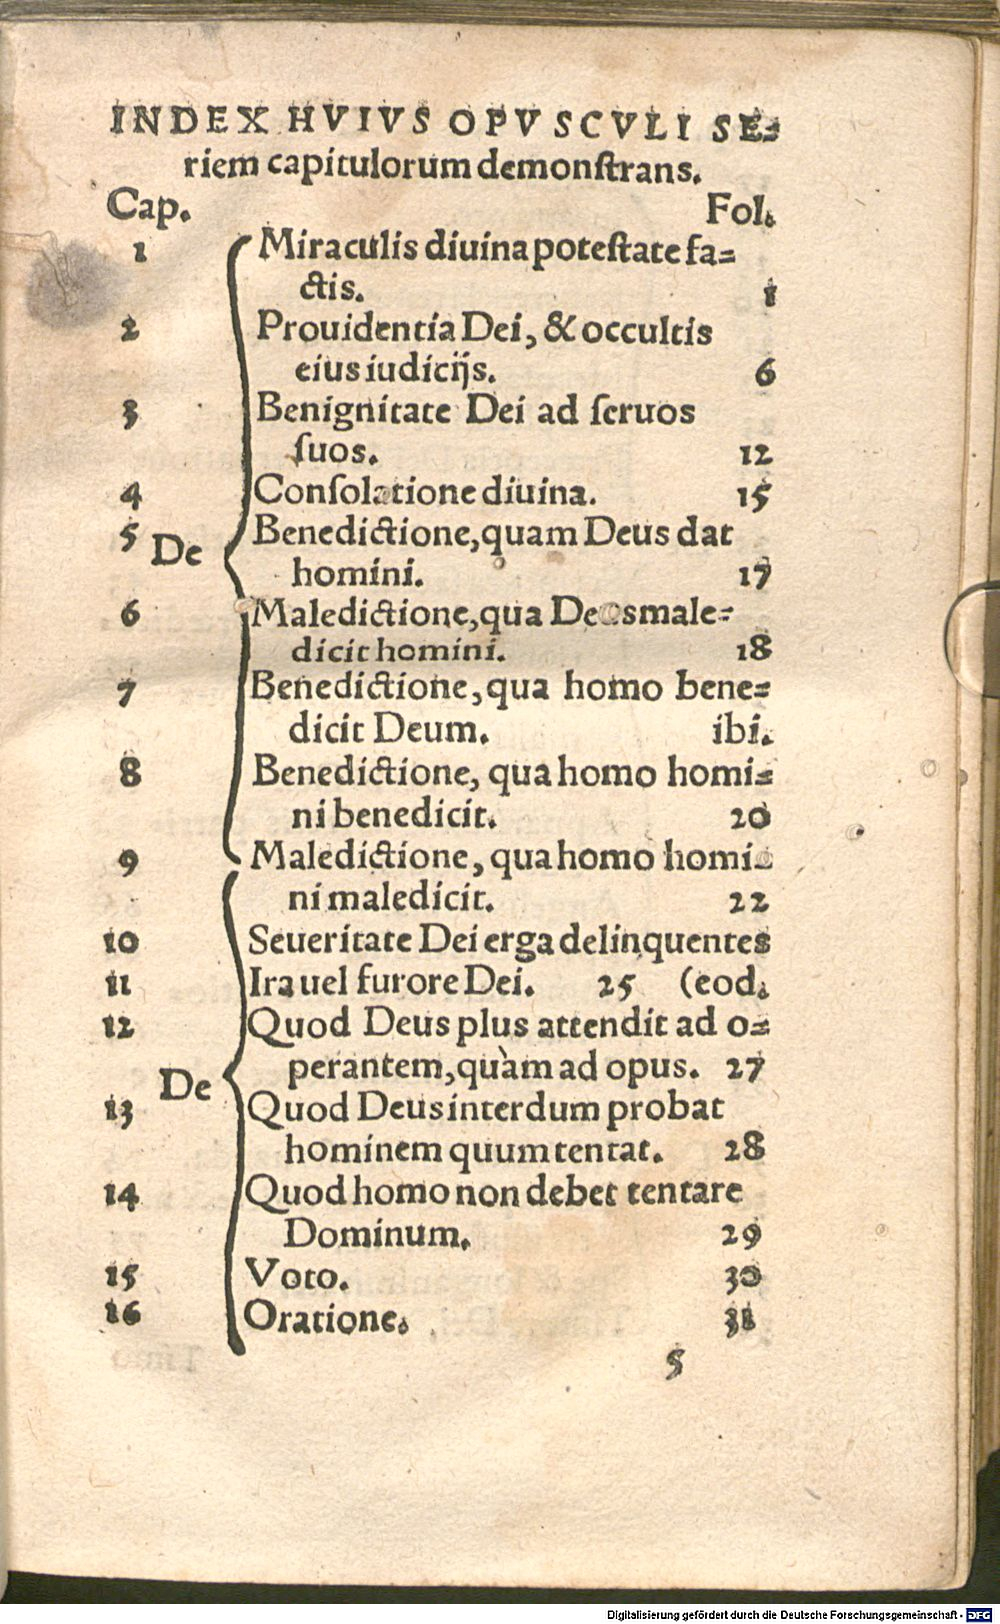 INDEX HVIVS OPVSCVLI SE-
riem capitulorum demonſtrans.
Cap. Fol.
1 Miraculis diuina poteſtate fa-
ctis. 1
2 Prouidentia Dei, & occultis
eius iudicijs. 6
3 Benignitate Dei ad ſeruos
ſuos. 12
4 Conſolatione diuina. 15
5 De Benedictione, quam Deus dat
homini. 17
6 Maledictione, qua Deus male-
dicit homini. 18
7 Benedictione, qua homo bene-
dicit Deum. ibi.
8 Benedictione, qua homo homi-
ni benedicit. 20
9 Maledictione, qua homo homi-
ni maledicit. 22
10 Seueritate Dei erga delinquentes
11 Ira uel furore Dei. 25 (eod.
12 Quod Deus plus attendit ad o-
perantem, quàm ad opus. 27
De
13 Quod Deus interdum probat
hominem quum tentat. 28
14 Quod homo non debet tentare
Dominum. 29
15 Voto. 30
16 Oratione. 31
5
Digitalisierung gefördert durch die Deutsche Forschungsgemeinschaft - DFG